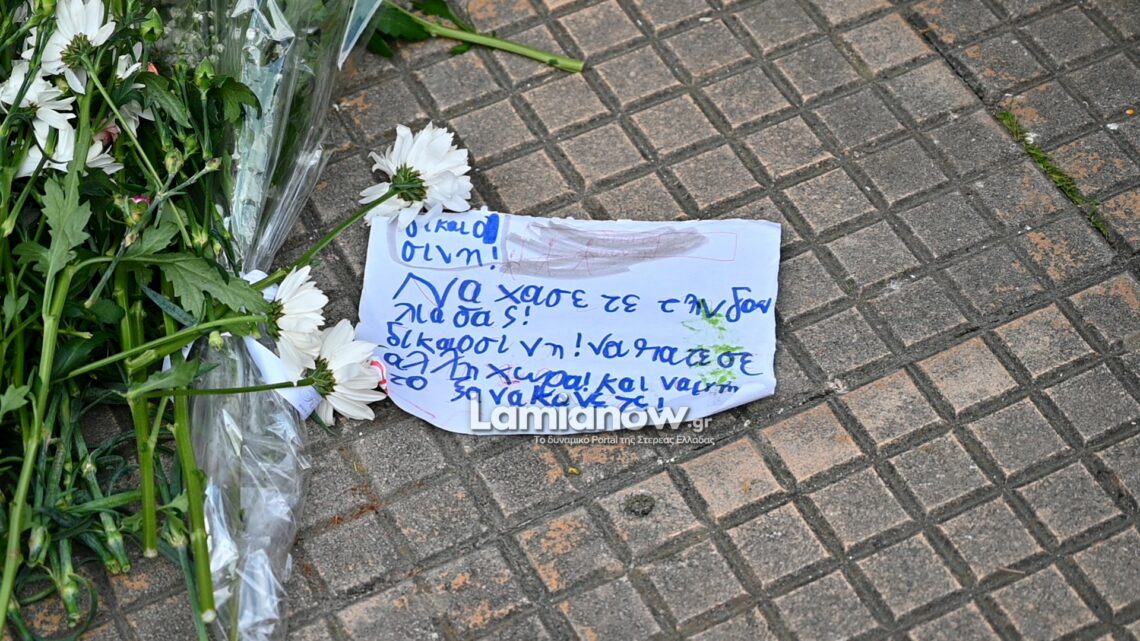 δικαιο
σινη!
Να χασε τε την δου
λια σας!
δικαιοσινη! να πατε σε
αλλη χωρα! και να μη
το ξανακανετε!
Lamianow.gr
Το δυναμικό Portal της Στερεάς Ελλάδας